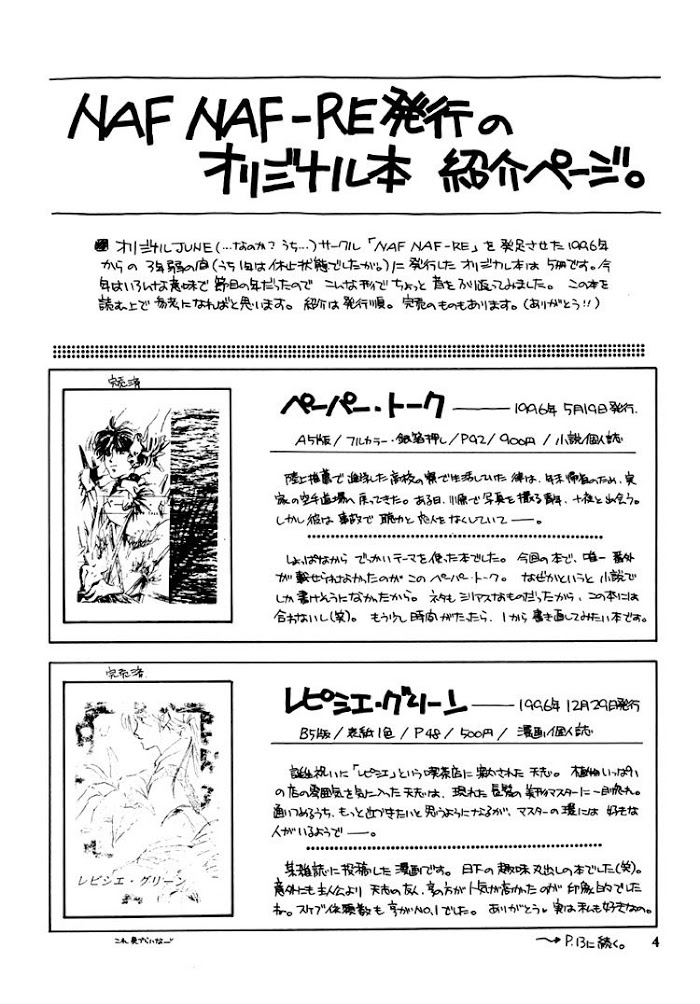 NAF NAF-RE発行の
オリジナル本 紹介ページ。
オリジナルJUNE(…なのか?うち…)サークル「NAF NAF-RE」を発足させた1996年
からの3年弱の間(うち1年は休止状態でしたが。)に発行したオリジナル本は5冊です。今
年はいろんな意味で節目の年だったので こんな形でちょっと昔をふり返ってみました。この本を
読む上で参考になればと思います。紹介は発行順。完売のものもあります。(ありがとう!!)
完売済
ペーパー・トーク ――― 1996年5月19日発行.
A5版/フルカラー・銀箔押し/P92/900円/小説個人誌
陸上推薦で進学した高校の寮で生活していた律は、年末帰省のため、実
家の空手道場へ戻ってきた。ある日、川原で写真を撮る青年、十夜と出会う。
しかし彼は事故で聴力と恋人をなくしていて――。
しょっぱなから でっかいテーマを使った本でした。今回の本で、唯一番外
が載せられなかったのがこのペーパー・トーク。なぜかというと小説で
しか書けそうになかったから。ネタもシリアスなものだったから、この本には
合わないし(笑)。もう少し時間がたったら、1から書き直してみたい本です。
完売済
レピシエ・グリーン ――― 1996年12月29日発行
B5版/表紙1色/P48/500円/漫画個人誌
誕生祝いに「レピシエ」という喫茶店に案内された天志。植物いっぱい
の店の雰囲気を気に入った天志は、現れた長髪の美形マスターに一目惚れ。
通いつめるうち、もっと近づきたいと思うようになるが、マスターの環には好きな
人がいるようで――。
レピシエ・グリーン
某雑誌に投稿した漫画です。日下の趣味丸出しの本でした(笑)。
意外にも主人公より天志の友人、享の方が人気が高かったのが印象的でした
ね。スケブ依頼数も享がNo.1でした。ありがとう♡実は私も好きなの。
→P.13に続く。
4